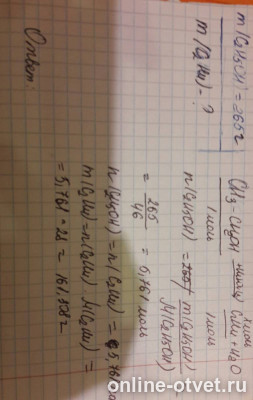 m(C₂H₅OH) = 265 г
m(C₂H₄) - ?
CH₃-CH₂OH → C₂H₄ + H₂O
1 моль 1 моль 1 моль
n(C₂H₅OH) = m(C₂H₅OH) / M(C₂H₅OH) =
= 265/46 = 5,761 моль
n(C₂H₅OH) = n(C₂H₄) = 5,76
m(C₂H₄) = n(C₂H₄) · M(C₂H₄) =
= 5,761 · 28 = 161,308 г
Ответ:
online-otvet.ru